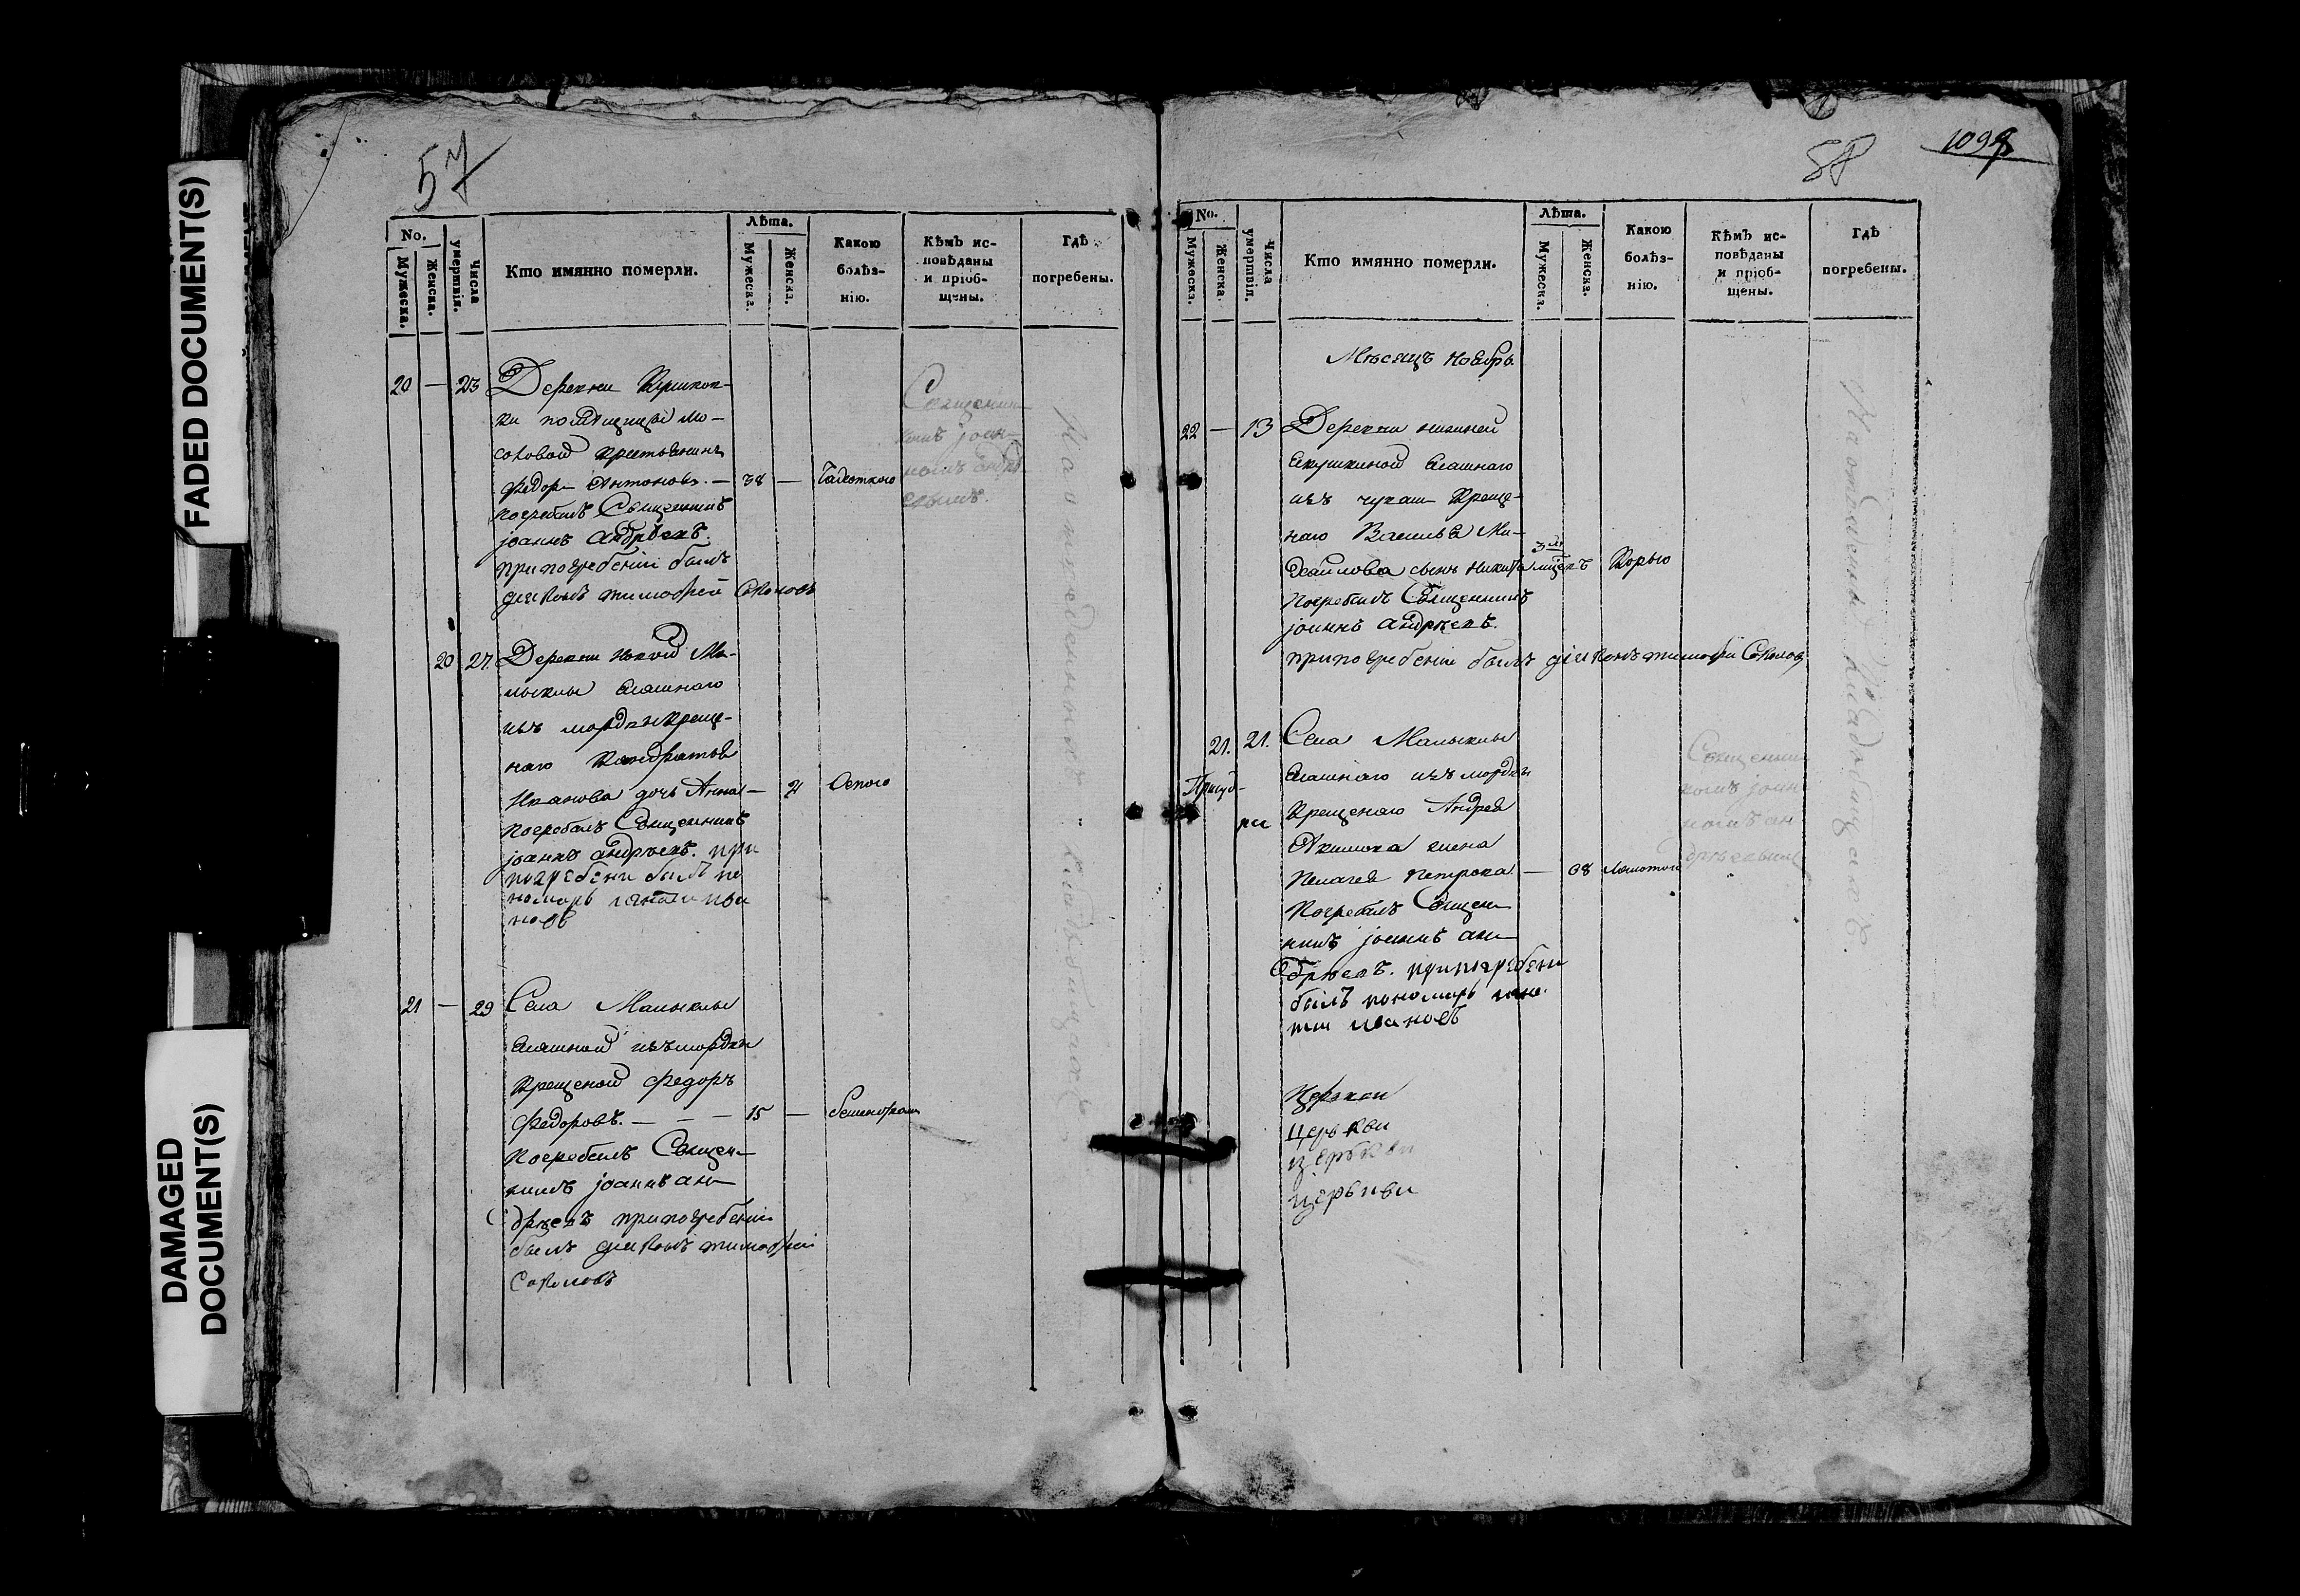 FADED DOCUMENT(S)
DAMAGED
DOCUMENT(S)
57
No.
Мужеска.
Женска.
Числа
умертвія.
Кто имянно померли.
Лѣта.
Мужеска.
Женска.
Какою
болѣз-
нію.
Кѣмъ ис-
повѣданы
и пріоб-
щены.
Гдѣ
погребены.
20 — 23 Деревни
ки помѣщицы
совой крестьянинъ
Федоръ Антоновъ. — 38 — Чахоткою
погребалъ Священникъ
јоаннъ андрѣевъ.
при погребеніи былъ
діаконъ тимофей Соколовъ
Священни-
комъ јоан-
номъ андрѣ-
евымъ.
На отведенномъ кладбищѣ
20 27. Деревни новой Ма-
лыклы ясашнаго
изъ мордвы креще-
наго Кондратья
Иванова дочь Анна — 2 Оспою
погребалъ Священникъ
јоаннъ андрѣевъ. при
погребени былъ по
номарь игнатій ива
новъ
21 — 29 Села Малыклы
ясашной изъ мордвы
крещеной Федоръ
Федоровъ. — — — 15 —
погребалъ Священ-
никъ јоаннъ ан-
дрѣевъ при погребеніи
былъ діаконъ тимофей
Соколовъ
58
109
No.
Мужеска.
Женска.
Числа
умертвія.
Кто имянно померли.
Лѣта.
Мужеска.
Женска.
Какою
болѣз-
нію.
Кѣмъ ис-
повѣданы
и пріоб-
щены.
Гдѣ
погребены.
Мѣсяцъ ноябрь.
22 — 13 Деревни нижней
Якушкиной ясашнаго
изъ чуваш креще-
наго Василья Ми-
хайлова сынъ никита 3 м Корью
погребалъ Священникъ
јоаннъ андрѣевъ.
при погребеніи былъ діаконъ тимофей Соколовъ
21. 21. Села Малыклы
ясашнаго изъ мордвы
крещенаго Андрея
Акимова жена
Пелагея петрова — 68 ломотою
погребалъ Священ-
никъ јоаннъ ан-
дрѣевъ. при погребени
былъ пономарь игна-
тій ивановъ
Священни-
комъ јоан-
номъ ан
дрѣевымъ
На отведенномъ кладбищѣ.
Церкви
Церкви
церкви
церкви